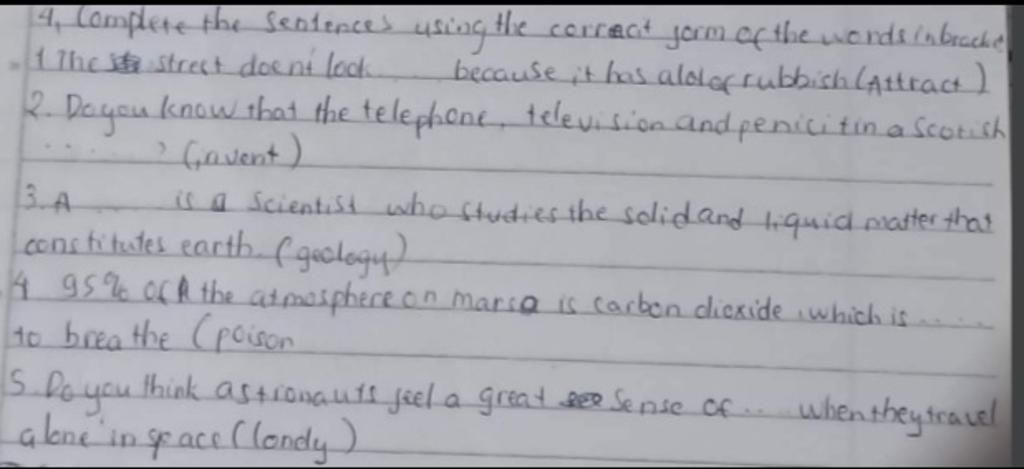 4, Complete the sentences using the correct form of the words in bracke
1 The street doent look .... because it has alot of rubbish (Attract)
2. Do you know that the telephone, television and penicitin a Scotish
......? (invent)
3. A .... is a scientist who studies the solid and liquid matter that
constitutes earth. (geology)
4 95% of the atmosphere on mars is carbon dioxide, which is .....
to breathe (poison
5. Do you think astronauts feel a great sense of .. when they travel
alone in space (londy)